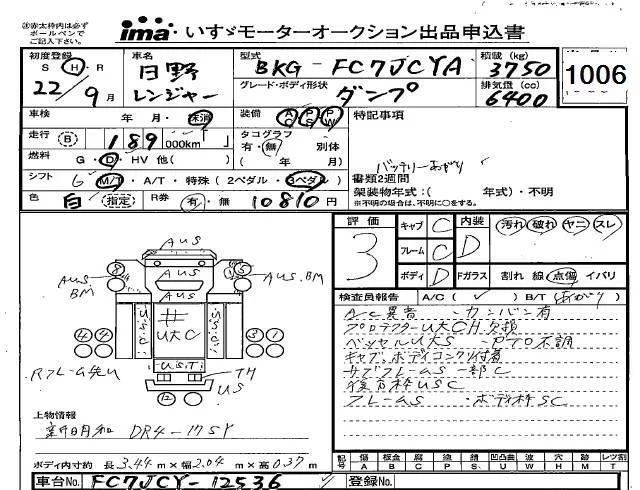 ※赤太枠内は必ず
ボールペンで
ご記入下さい。
ima いすゞモーターオークション出品申込書
初度登録 S・H・R 22年 9月
車名 日野 レンジャー
型式 BKG-FC7JCYA
積載(kg) 3750
グレード・ボディ形状 ダンプ
排気量(cc) 6400
1006
車検 年・月・抹消
装備 AC PS PW
特記事項
走行 B 189 000km
タコグラフ 有・無 別体
( 年 月)
燃料 G・D・HV 他( )
バッテリーあがり
シフト 6 M/T・A/T・特殊(2ペダル・3ペダル)
書類2週間
架装物年式:( 年式)・不明
※不明の場合は、不明に○をする。
色 白 (指定) R券 有・無 10810円
評価 3
キャブ C
フレーム C
ボディ D
内装 D
汚れ 破れ ヤニ スレ
Fガラス 割れ 線 点傷 イバリ
検査員報告 A/C( ✓ ) B/T(あがり)
A/C異音 ・カンバン有
プロテクターU大CH.欠損
ベッセルU大S ・PTO不調
キャブ、ボディコンク付着
サブフレームS 一部C
後方枠USC
フレームS ・ボディ枠SC
AUS
AUS
AUS
BM
AUS.BM
8
5
U.S.C
U.S.C
井
U大C
4 4
3 1
U.S.T
TH
US
12
Rフレーム先U
上物情報
新明和 DR4-17SY
ボディ内寸約 長3.44m×幅2.04m×高0.37m
車台No. FC7JCY-12536
登録No.
記号 傷A 板金B 腐C 塗P 錆S 凹凸曲U 波W 穴H 跡M レツ割T